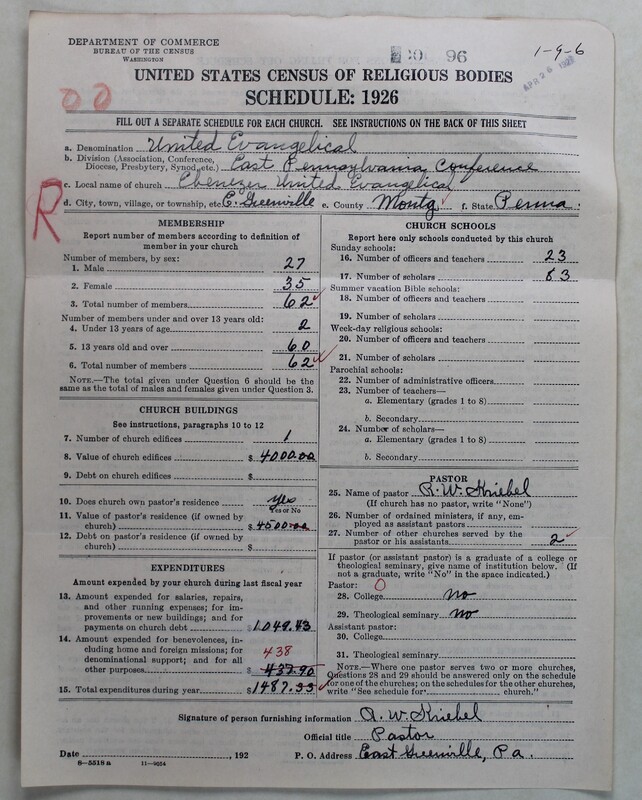 DEPARTMENT OF COMMERCE
BUREAU OF THE CENSUS
WASHINGTON
96
1-9-6
APR 26
UNITED STATES CENSUS OF RELIGIOUS BODIES
SCHEDULE: 1926
FILL OUT A SEPARATE SCHEDULE FOR EACH CHURCH. SEE INSTRUCTIONS ON THE BACK OF THIS SHEET
a. Denomination United Evangelical
b. Division (Association, Conference, Diocese, Presbytery, Synod, etc.) East Pennsylvania Conference
c. Local name of church Ebenezer United Evangelical
d. City, town, village, or township, etc. E. Greenville e. County Montg f. State Penna.
R
MEMBERSHIP
Report number of members according to definition of
member in your church
Number of members, by sex:
1. Male 27
2. Female 35
3. Total number of members 62
Number of members under and over 13 years old:
4. Under 13 years of age 2
5. 13 years old and over 60
6. Total number of members 62
NOTE.—The total given under Question 6 should be
the same as the total of males and females given under Question 3.
CHURCH BUILDINGS
See instructions, paragraphs 10 to 12
7. Number of church edifices 1
8. Value of church edifices $ 4000.00
9. Debt on church edifices $
10. Does church own pastor's residence yes
Yes or No
11. Value of pastor's residence (if owned by
church) $ 4500.00
12. Debt on pastor's residence (if owned by
church) $
EXPENDITURES
Amount expended by your church during last fiscal year
13. Amount expended for salaries, repairs,
and other running expenses; for im-
provements or new buildings; and for
payments on church debt $ 1049.43
14. Amount expended for benevolences, in-
cluding home and foreign missions; for
denominational support; and for all
438
other purposes $ 437.90
15. Total expenditures during year $ 1487.33
CHURCH SCHOOLS
Report here only schools conducted by this church
Sunday schools:
16. Number of officers and teachers 23
17. Number of scholars 83
Summer vacation Bible schools:
18. Number of officers and teachers
19. Number of scholars
Week-day religious schools:
20. Number of officers and teachers
21. Number of scholars
Parochial schools:
22. Number of administrative officers
23. Number of teachers—
a. Elementary (grades 1 to 8)
b. Secondary
24. Number of scholars—
a. Elementary (grades 1 to 8)
b. Secondary
PASTOR
25. Name of pastor R. W. Kriebel
(If church has no pastor, write "None")
26. Number of ordained ministers, if any, em-
ployed as assistant pastors
27. Number of other churches served by the
pastor or his assistants 2
If pastor (or assistant pastor) is a graduate of a college or
theological seminary, give name of institution below. (If
not a graduate, write "No" in the space indicated.)
Pastor: 0
28. College no
29. Theological seminary no
Assistant pastor:
30. College
31. Theological seminary
NOTE.—Where one pastor serves two or more churches,
Questions 28 and 29 should be answered only on the schedule
for one of the churches; on the schedules for the other churches,
write "See schedule for church."
Signature of person furnishing information R. W. Kriebel
Official title Pastor
Date , 192 P. O. Address East Greenville, Pa.
8—5518 a 11—9054